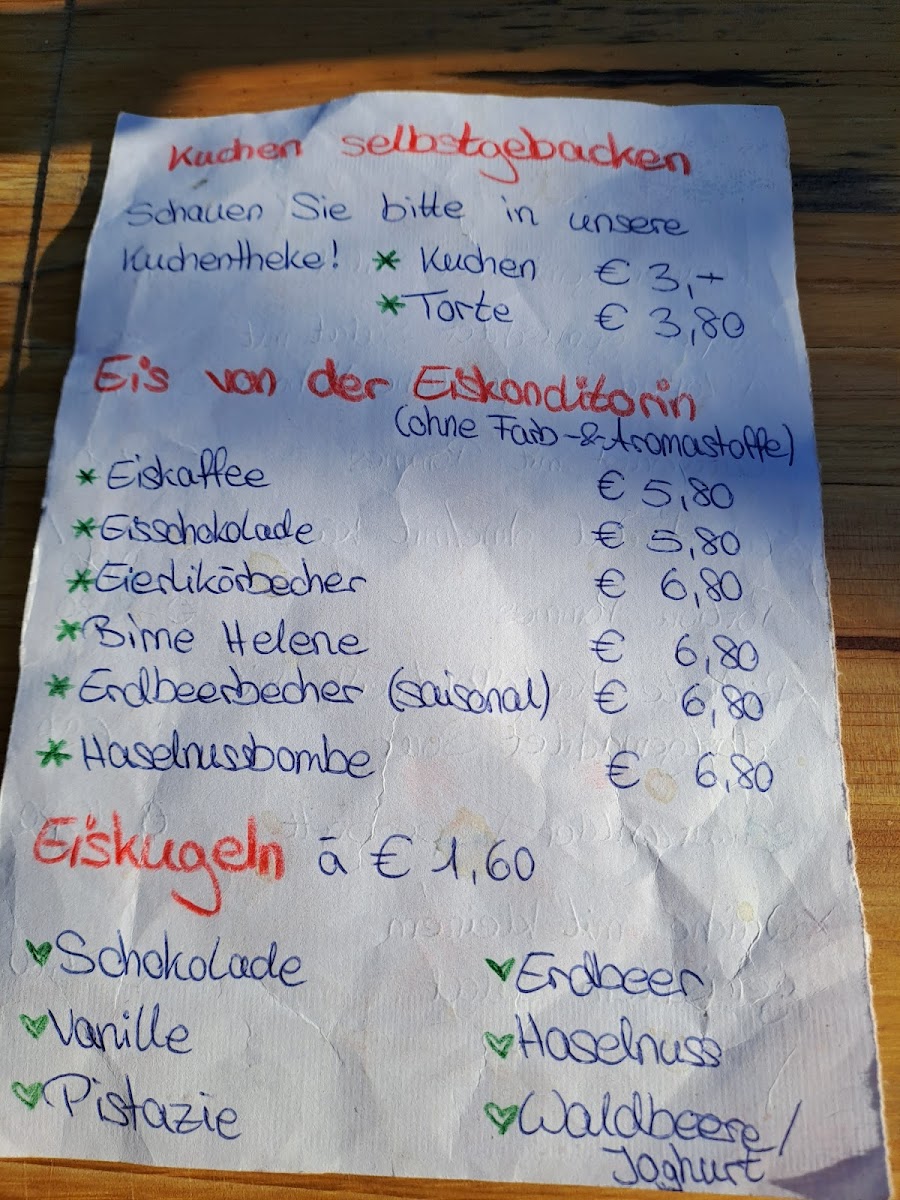 Kuchen selbstgebacken
Schauen Sie bitte in unsere
Kuchentheke! * Kuchen € 3,-
* Torte € 3,80
Eis von der Eiskonditorin
(ohne Farb-&Aromastoffe)
* Eiskaffee € 5,80
* Eisschokolade € 5,80
* Eierlikörbecher € 6,80
* Birne Helene € 6,80
* Erdbeerbecher (saisonal) € 6,80
* Haselnussbombe € 6,80
Eiskugeln à € 1,60
♥ Schokolade ♥ Erdbeer
♥ Vanille ♥ Haselnuss
♥ Pistazie ♥ Waldbeere/
Joghurt